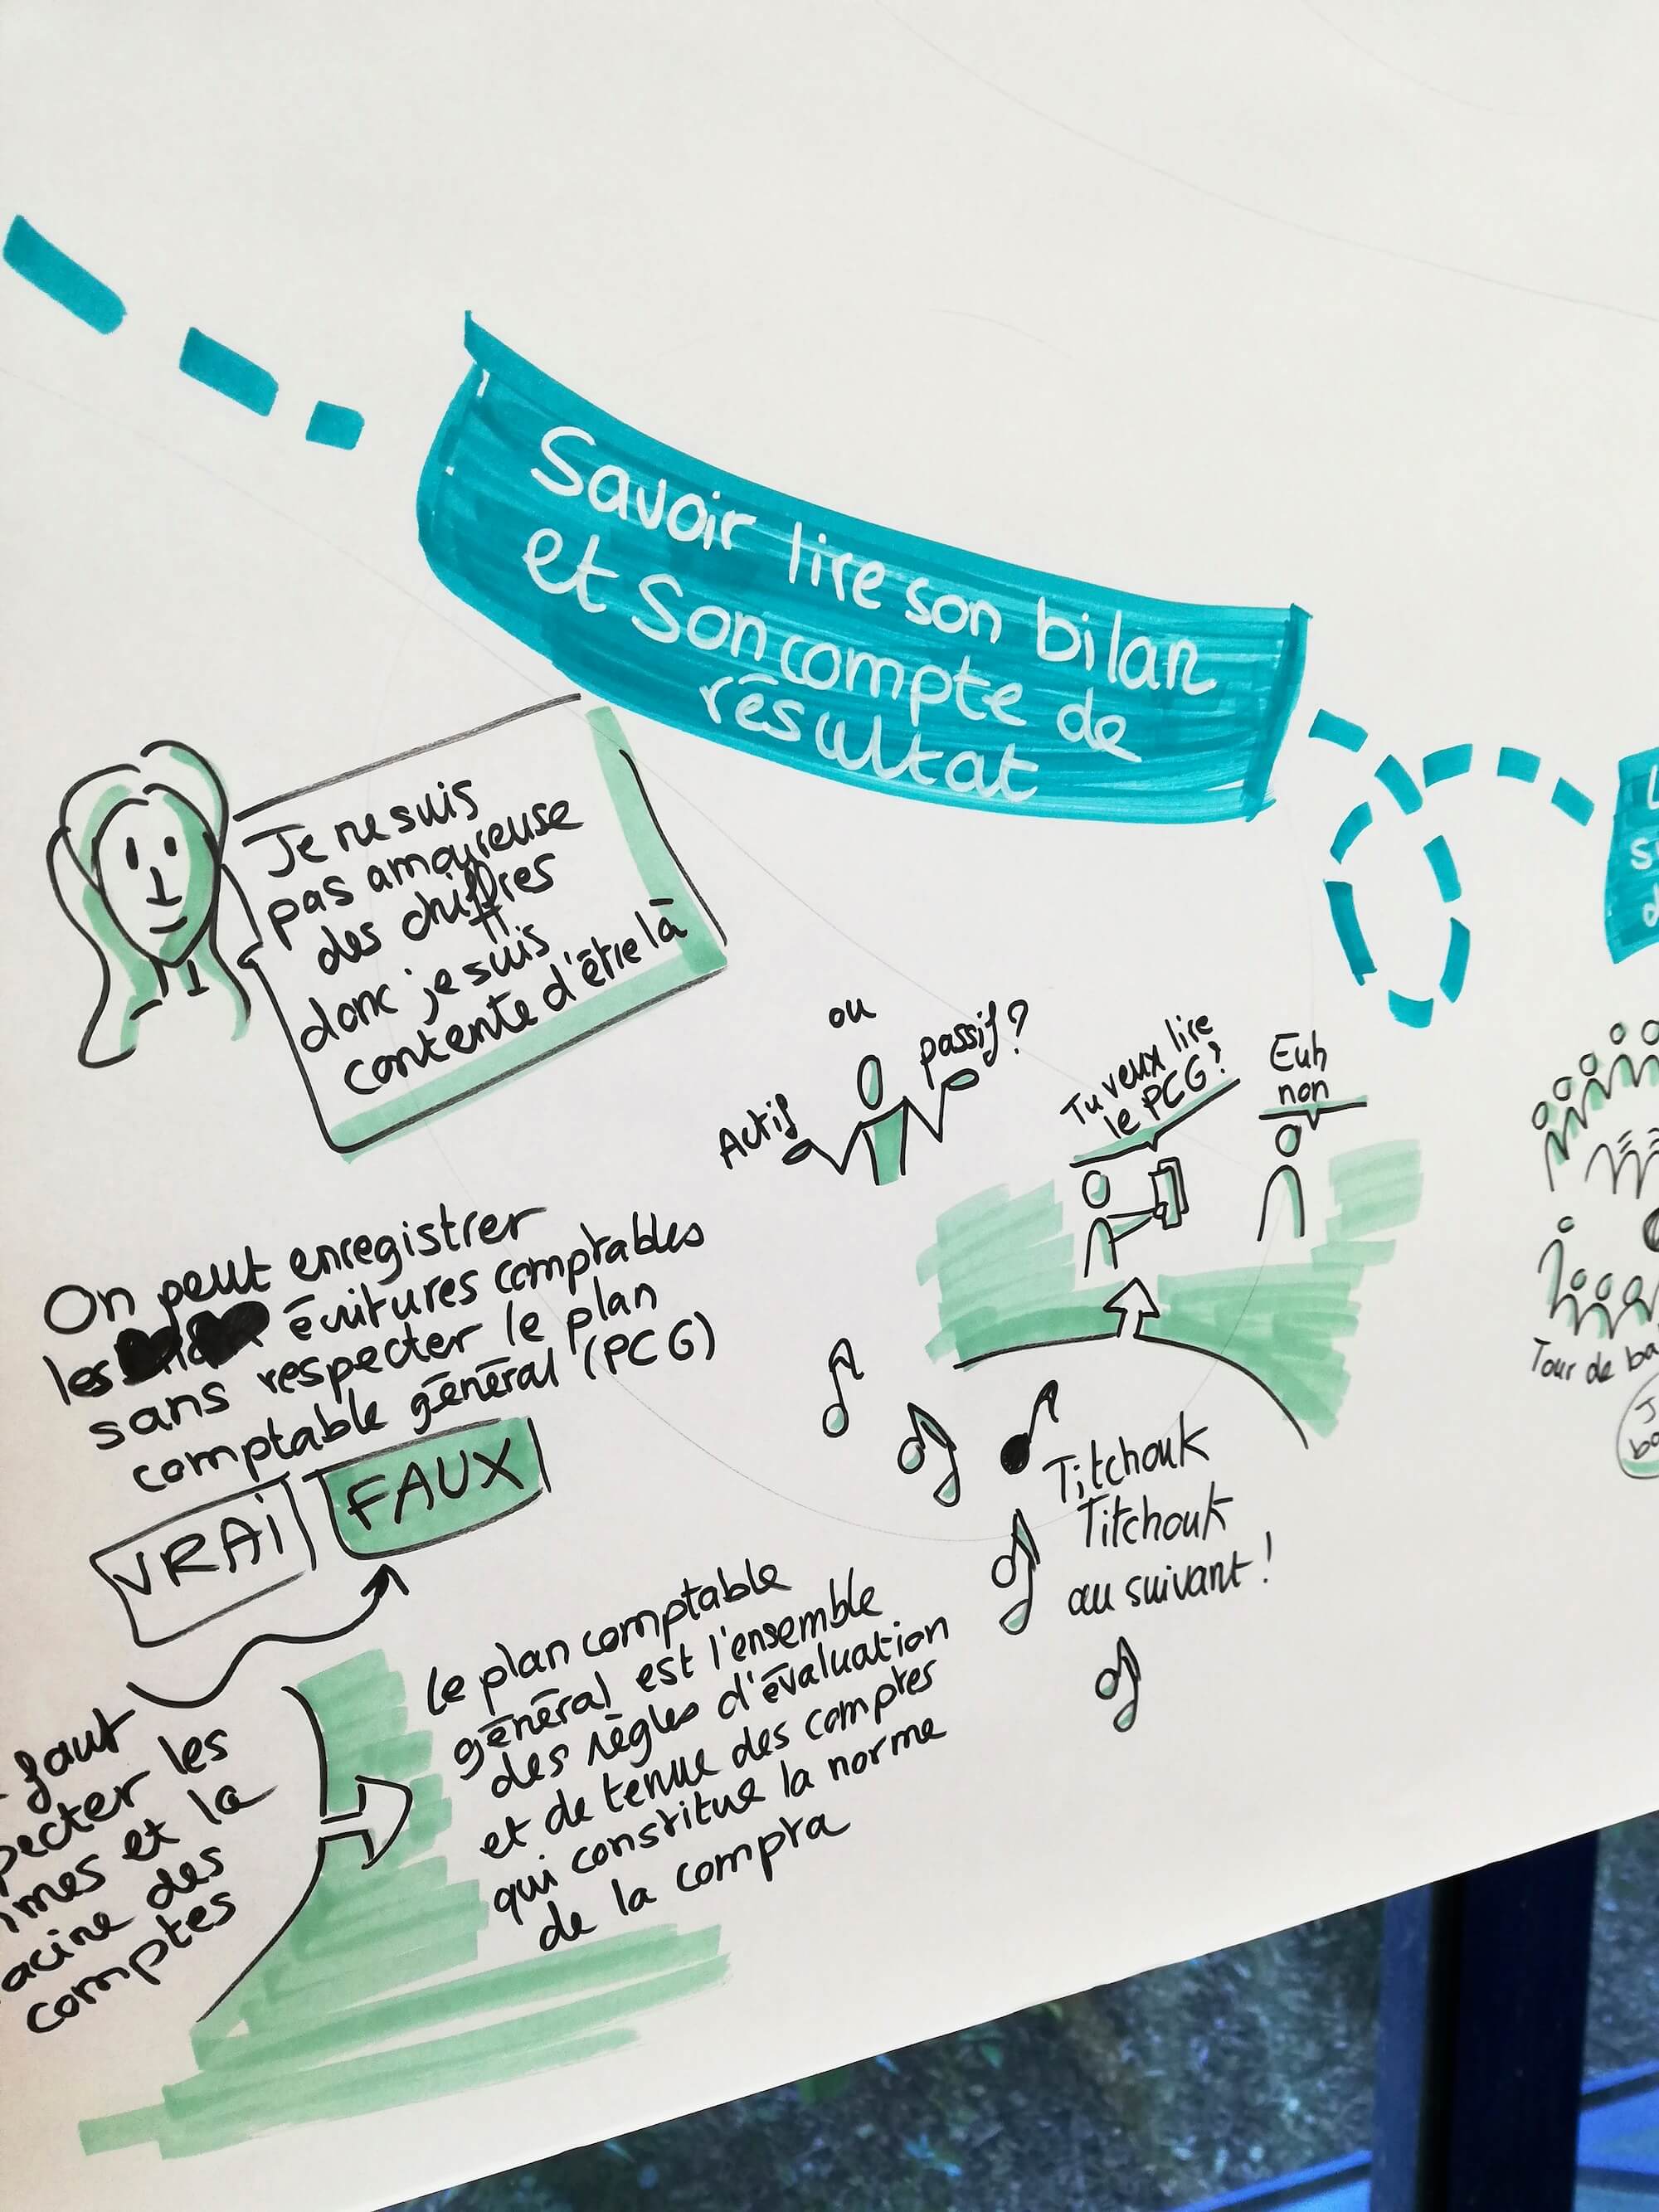 Savoir lire son bilan
et son compte de
résultat
Je ne suis
pas amoureuse
des chiffres
donc je suis
contente d'être là
Actif
ou
passif ?
Tu veux lire
le PCG ?
Euh
non
On peut enregistrer
les écritures comptables
sans respecter le plan
comptable général (PCG)
VRAI
FAUX
Titchouk
Titchouk
au suivant !
faut
les
et la
des
comptes
le plan comptable
général est l'ensemble
des règles d'évaluation
et de tenue des comptes
qui constitue la norme
de la compta
Tour de